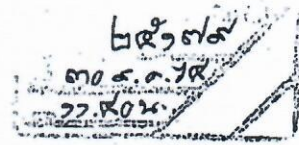 ๒๕๑๗๙
๓๐ ส.ค. ๖๔
๑๑.๔๐น.